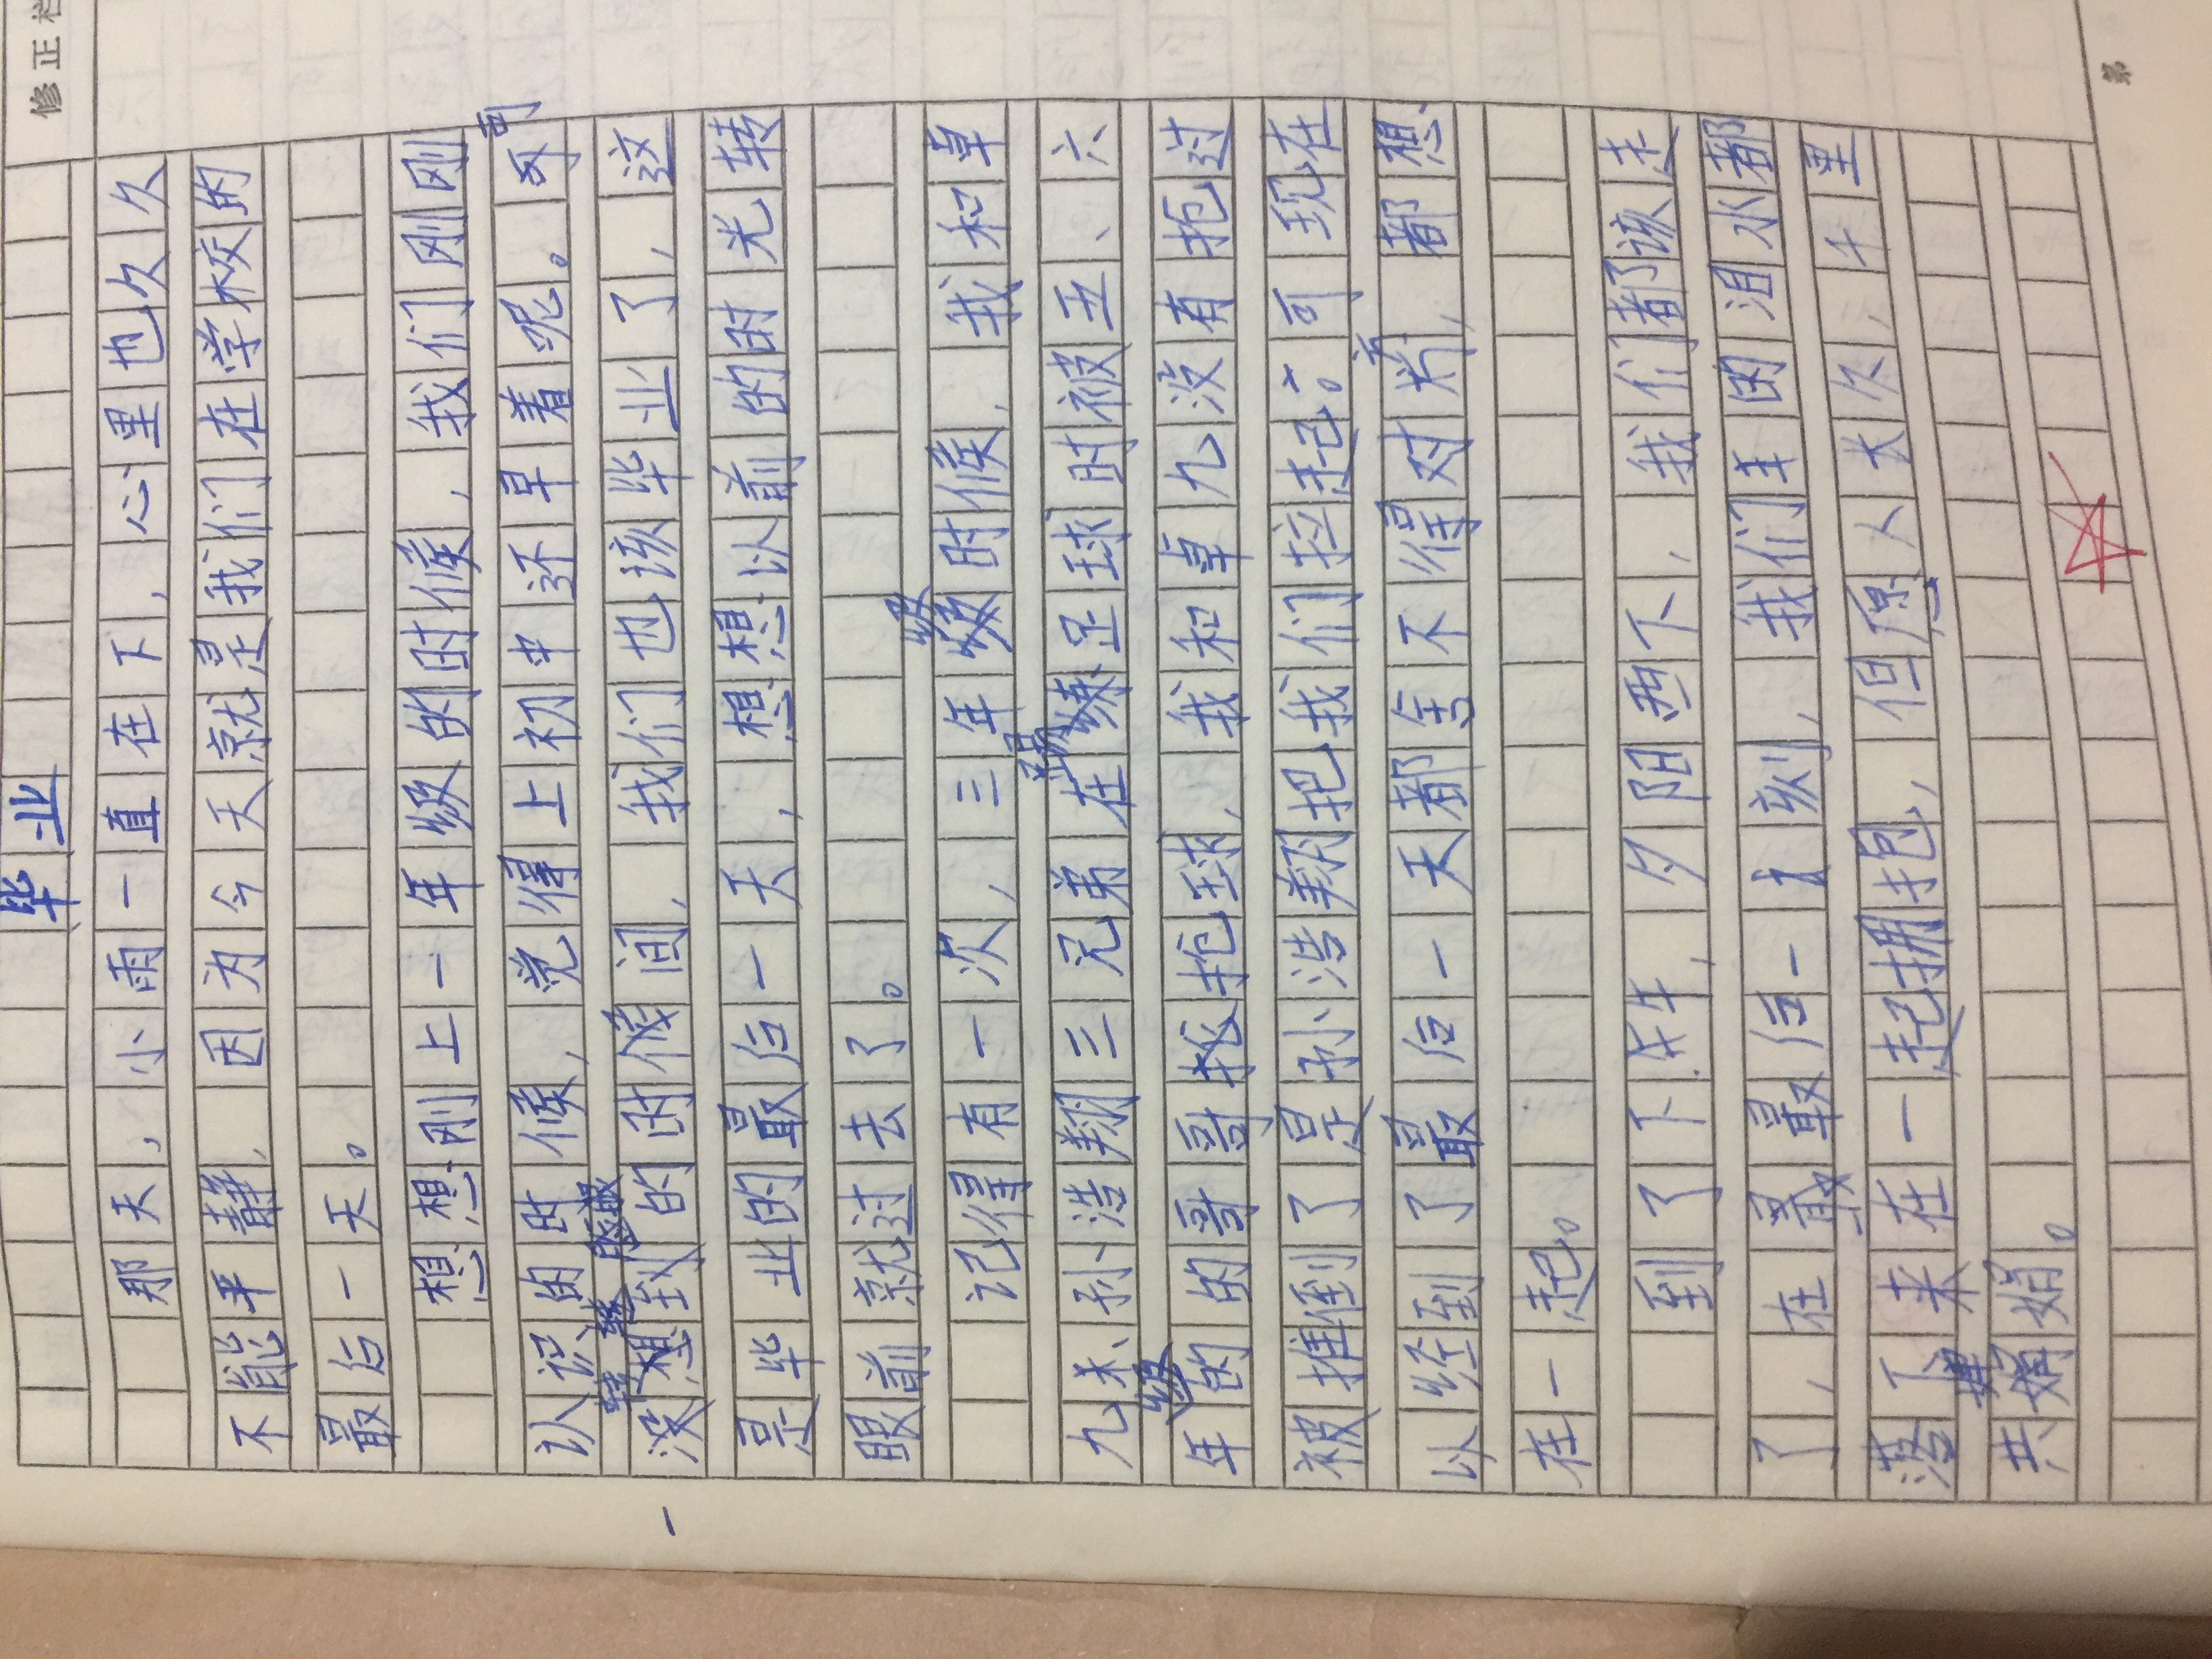 修正栏
第
毕业
那天，小雨一直在下，心里也久久
不能平静，因为今天就是我们在学校的
最后一天。
想想刚上一年级的时候，我们刚刚
认识的时候，觉得上初中还早着呢。可
没想到的时候间，我们也该毕业了，这
是毕业的最后一天，想想以前的时光转
眼前就过去了。
记得有一次，三年级时候，我和卓
九未、孙浩翔三兄弟在踢足球时被五、六
年级的哥哥抢球，我和卓九没有抢过
被推倒了是孙浩翔把我们拉起。可现在
以经到了最后一天都舍不得对方，都想
在一起。
到了下午，夕阳西下，我们都该走
了，在最后一刻，我们的泪水都
落了来在一起拥抱，但愿人长久，千里
共婵娟。